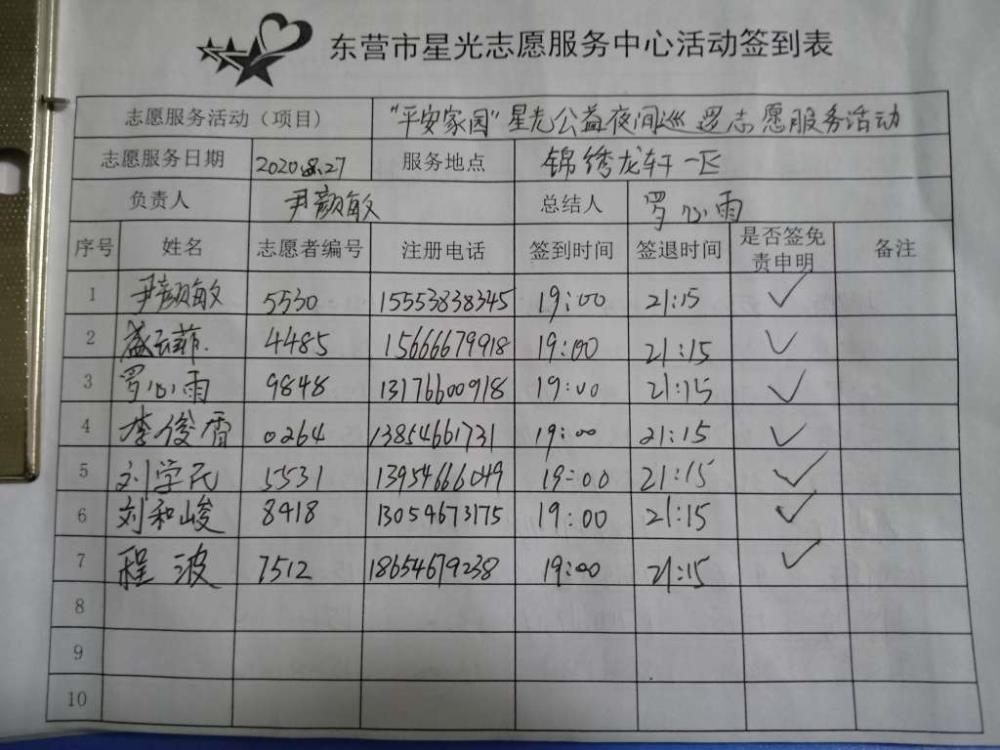 东营市星光志愿服务中心活动签到表
志愿服务活动（项目） "平安家园"星光公益夜间巡逻志愿服务活动
志愿服务日期 2020.8.27 服务地点 锦绣龙轩一区
负责人 尹颜敏 总结人 罗心雨
序号 姓名 志愿者编号 注册电话 签到时间 签退时间 是否签免责申明 备注
1 尹颜敏 5530 15553838345 19:00 21:15 ✓
2 盛云菲 4485 15666679918 19:00 21:15 ✓
3 罗心雨 9848 13176600918 19:00 21:15 ✓
4 李俊霄 0264 13854661731 19:00 21:15 ✓
5 刘学民 5531 13954666049 19:00 21:15 ✓
6 刘和峻 8418 13054673175 19:00 21:15 ✓
7 程波 7512 18654679238 19:00 21:15 ✓
8
9
10